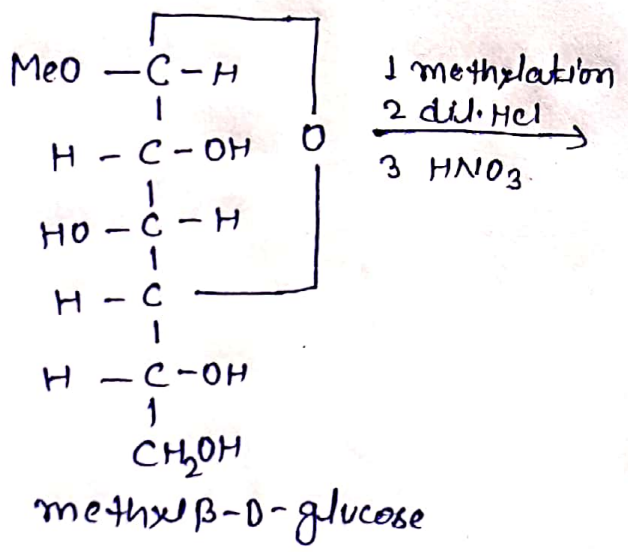 MeO – C – H
H – C – OH
O
HO – C – H
H – C
H – C – OH
CH₂OH
1 methylation
2 dil. HCl
3 HNO₃.
methyl β-D-glucose